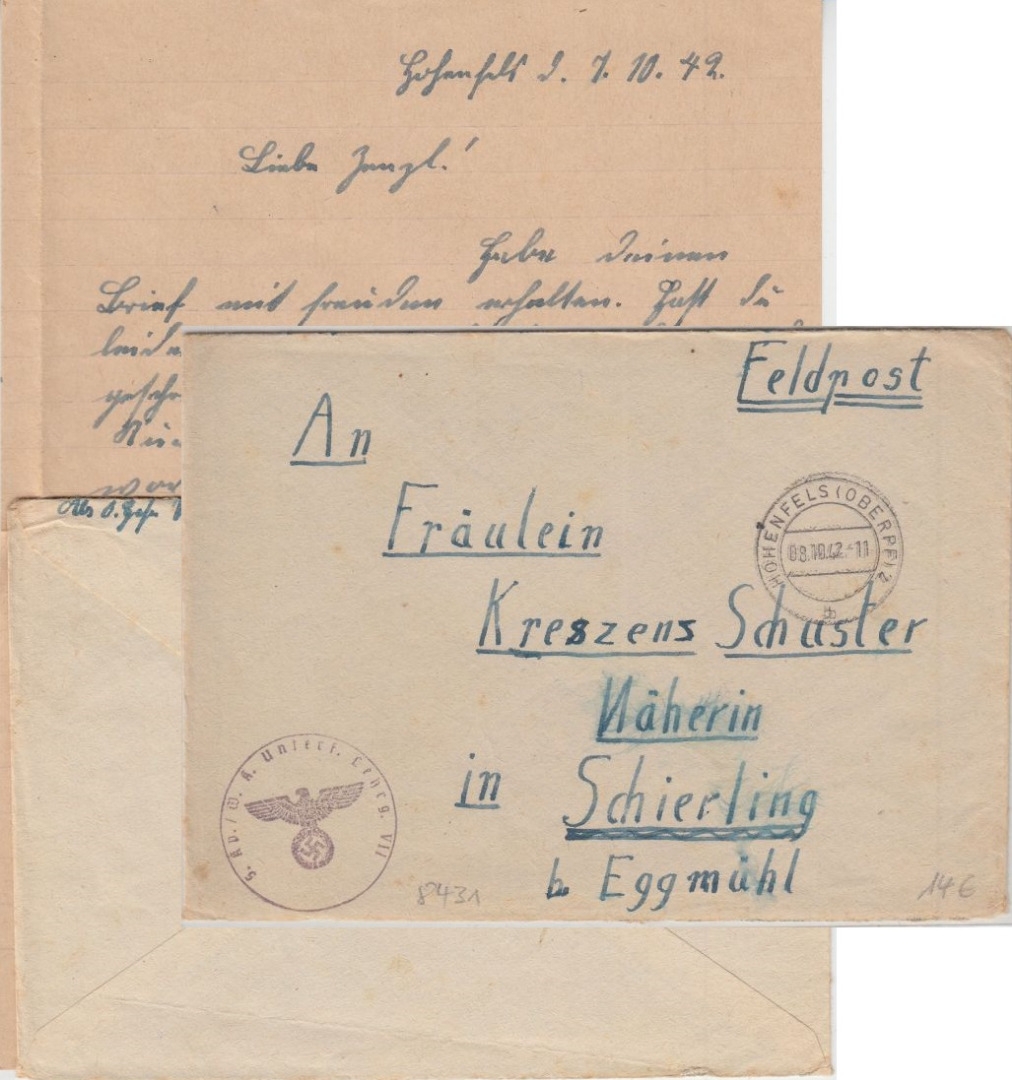 Hohenfels d. 7. 10. 42.
Liebe Zenzl!
Habe deinen
Brief mit freuden erhalten. Hast du
leide
geschr
war
Feldpost
An
Fräulein
Kreszens Schuster
Näherin
in Schierling
b Eggmühl
HOHENFELS (OBERPFALZ)
08.10.42.-11
b
5. Kp./W. K. Unterf. Lehrg. VII
8431
14€
Abs